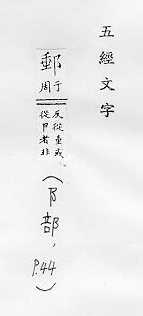 五經文字
郵
于
周
反從垂或
從卩者非
(阝部, p.44)